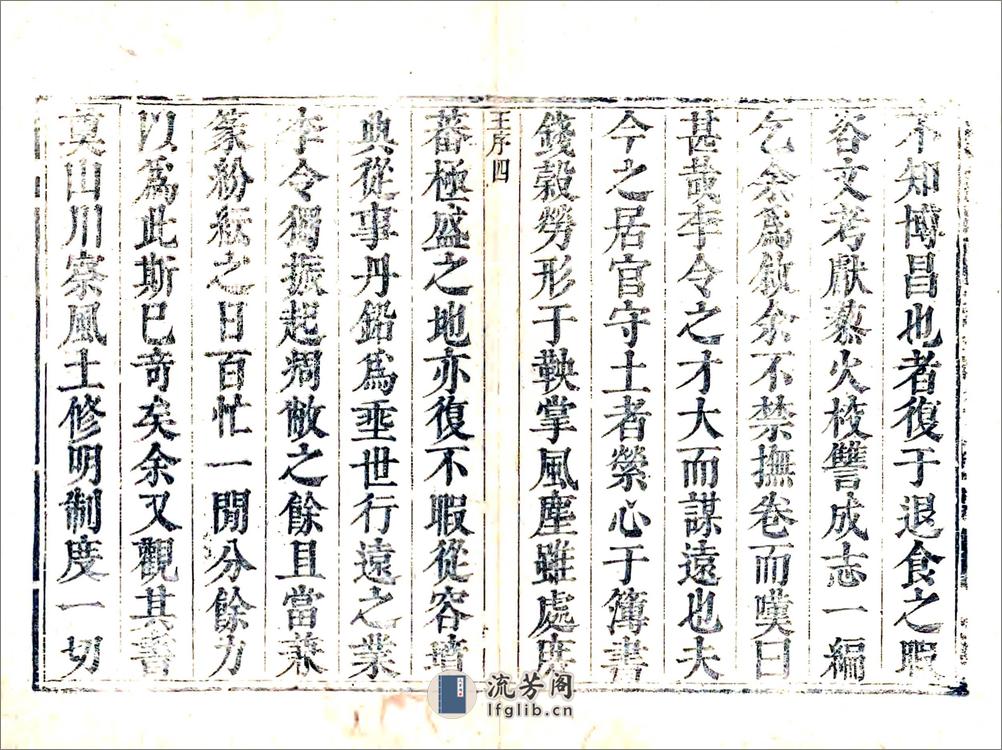 不知博昌也者復于退食之暇
咨文考獻蒸火校讐成志一編
乞余爲敘余不禁撫卷而嘆曰
甚哉李令之才大而謀遠也夫
今之居官守土者縈心于簿書
錢穀勞形于鞅掌風塵雖處庶
王序四
蕃極盛之地亦復不暇從容墳
典從事丹鉛爲垂世行遠之業
李令獨振起凋敝之餘且當兼
篆紛紜之日百忙一閒分餘力
以爲此斯已奇矣余又觀其書
奠山川察風土修明制度一切
流芳阁
lfglib.cn